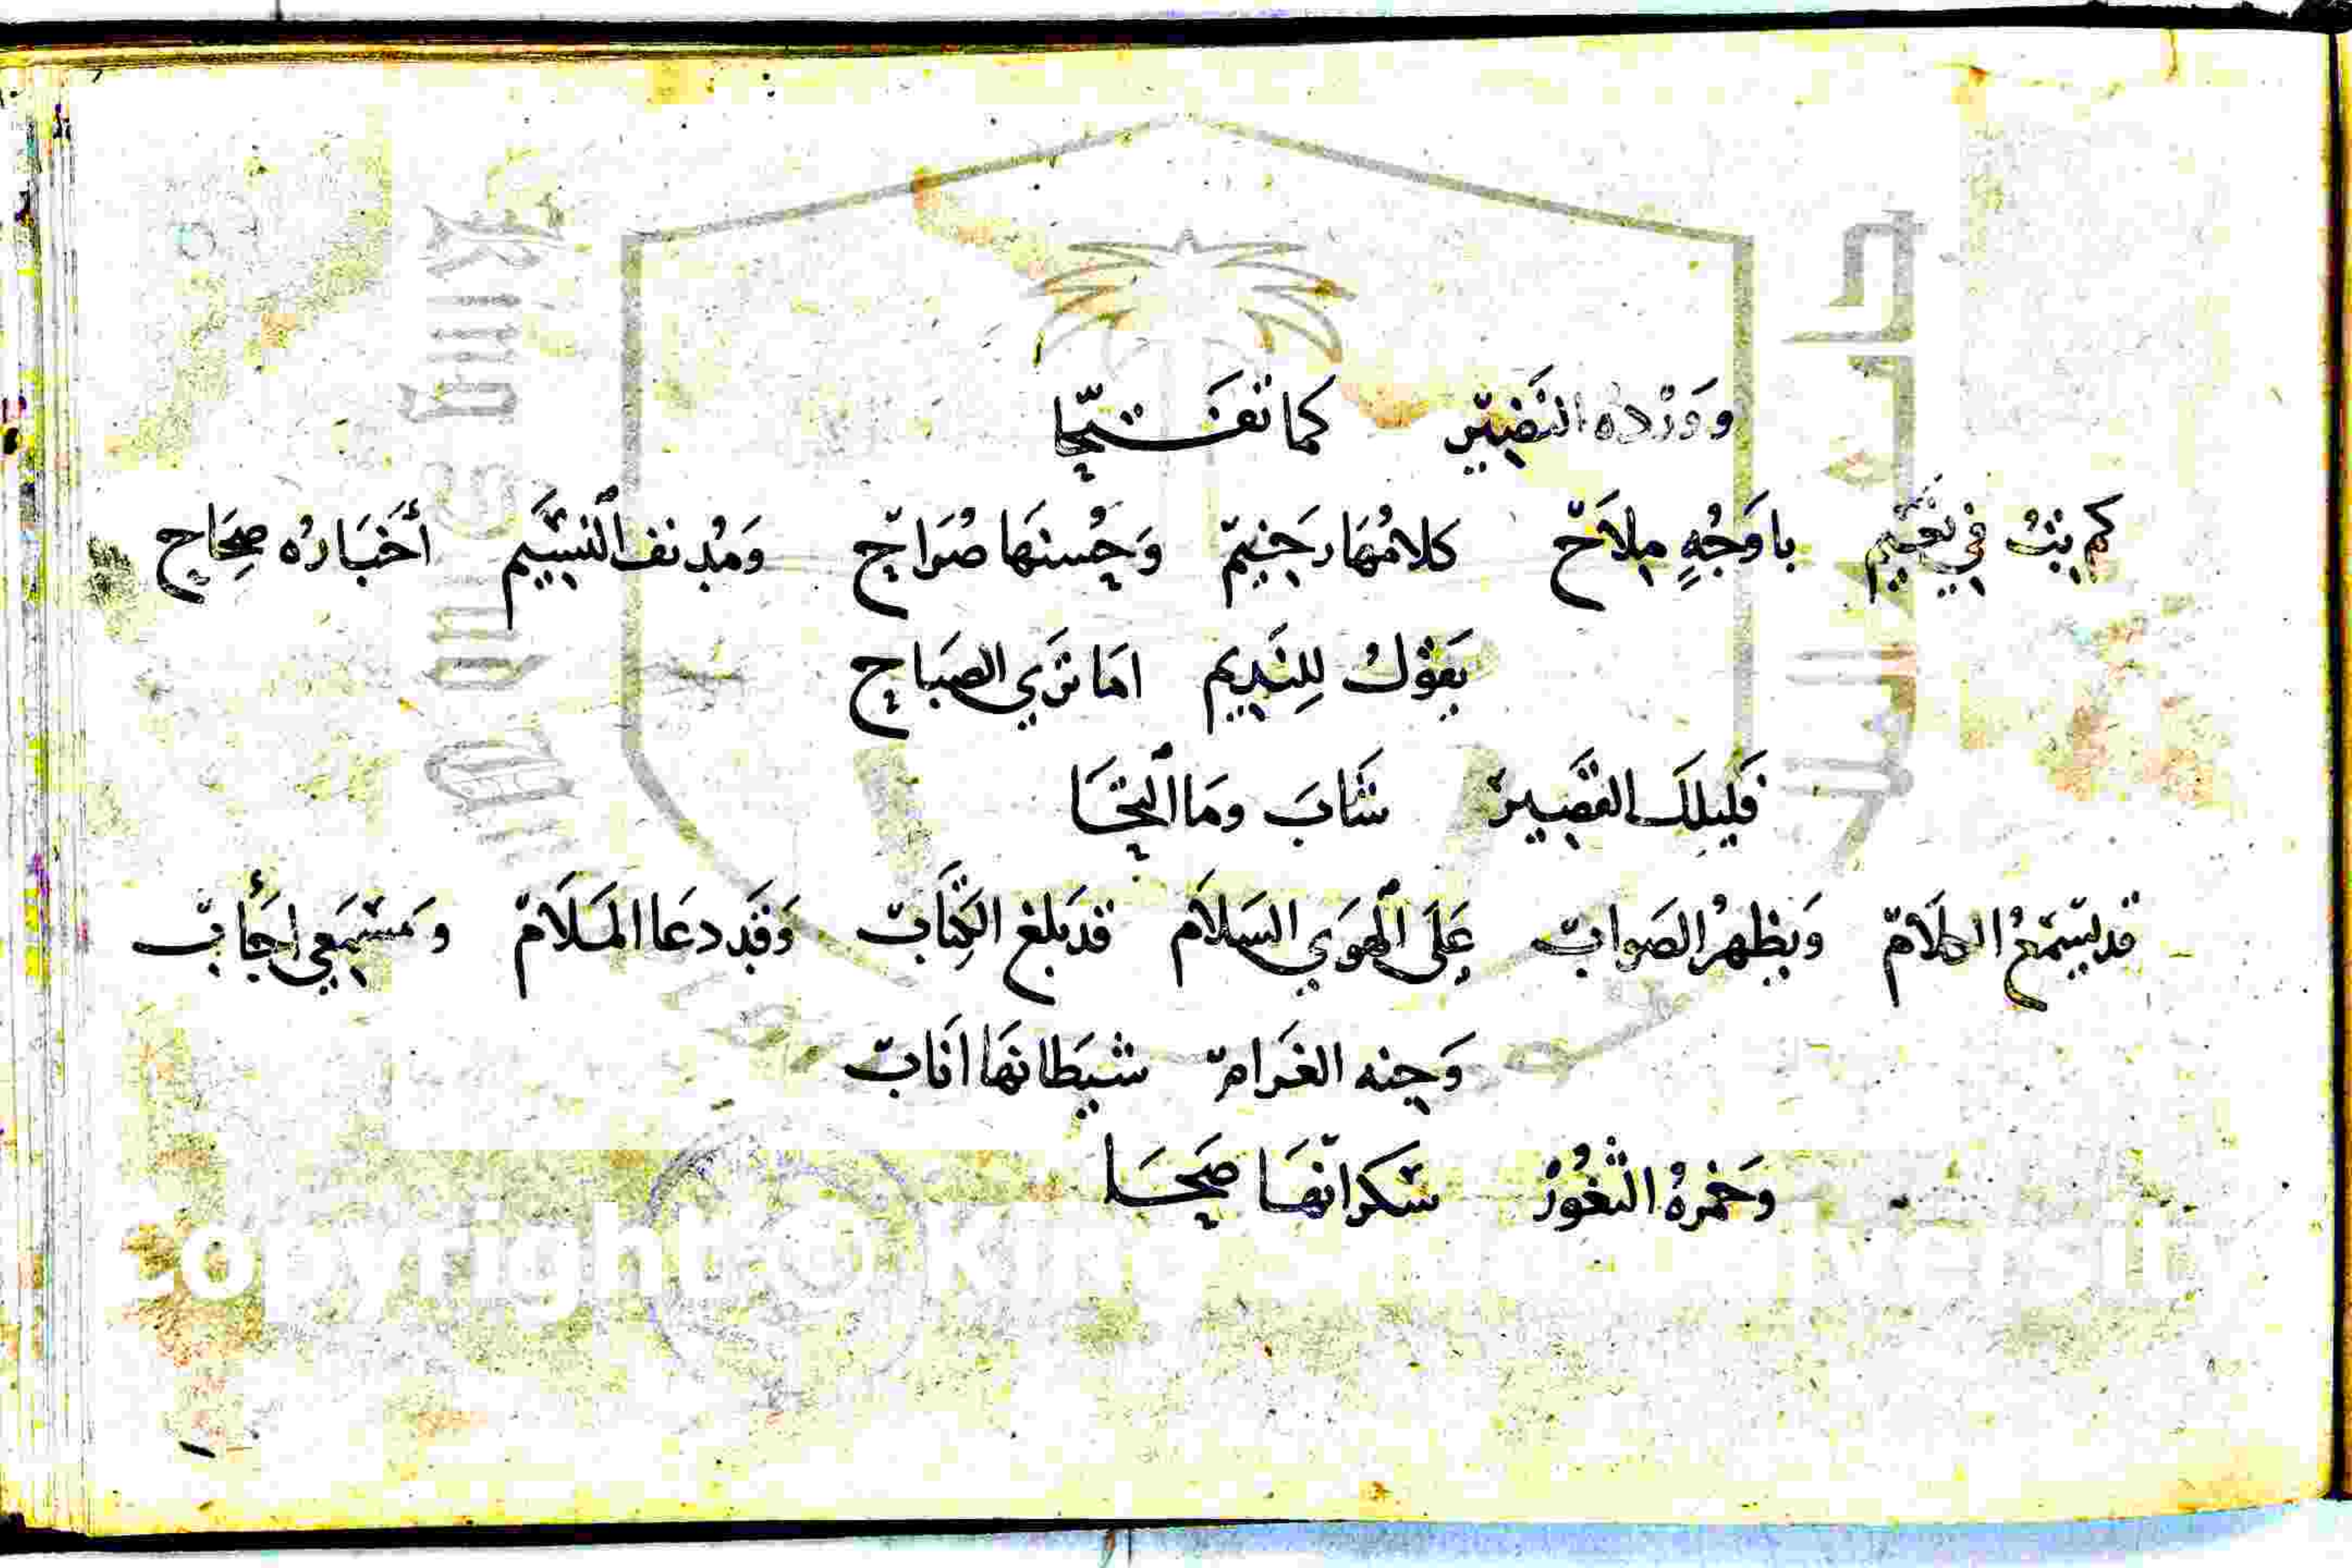 وَوَرْده النَضِيّر كما تفَتّحا
كم بتُ في نعَيم باوَجُهٍ مِلَاحّ كلامُهَا رَخيمّ وَحُسنهَا صُرَاحّ وَمُدنف النسّيَم أخبَارُه صِحَاح
يَقوْلُ لِلنَدِيم امَا تَرَي الصَبَاح
فَلَيلكَ القَصِير شَابَ ومَا الٓتحَا
قد يسّمَعُ الكلَامّ وَيَظهرُ الصَوابّ عَلَى الٓهوَي السَلَام قد بَلغ الكِتَابّ وَقَد دعَا المَلَامّ وَمسّمَعي اجَأبّ
وَجِنه الغَرَامّ شيَطانهَا انَابّ
وَخمرةُ الثغُورْ سَكرانهَا صَحَا
Copyright © King University